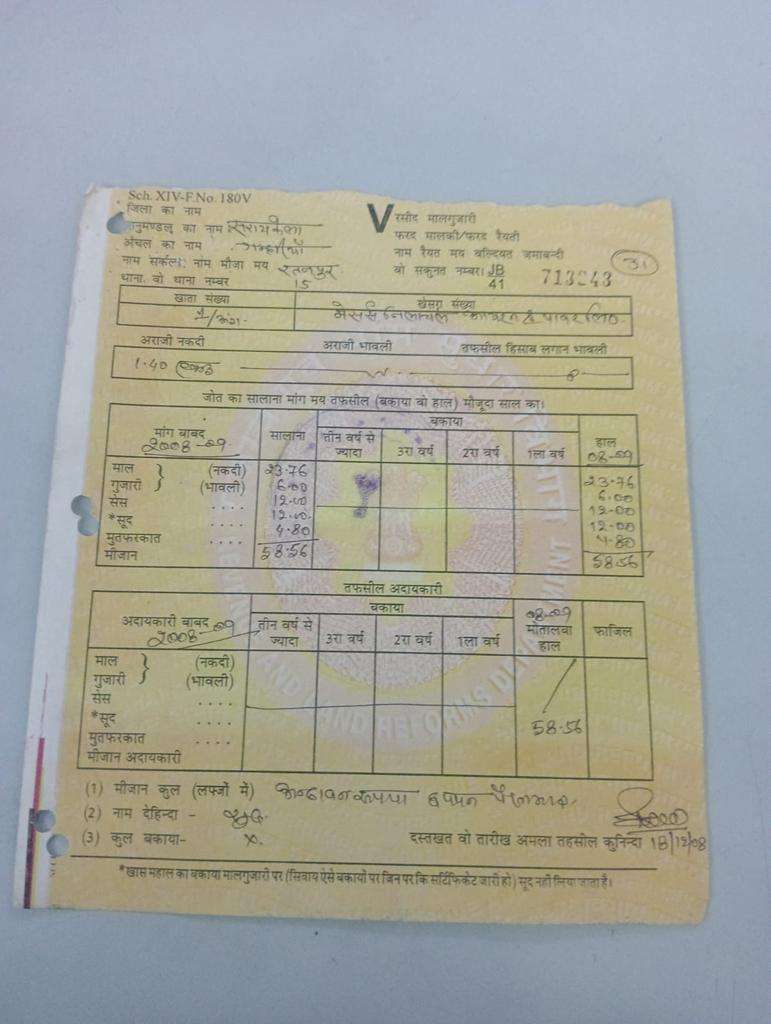 Sch. XIV-F.No. 180V
जिला का नाम
अनुमण्डल का नाम सरायकेला
अंचल का नाम
नाम सर्कल: नाम मौजा मय रतनपुर
थाना वो थाना नम्बर 15
V रसीद मालगुजारी
फरद मालकी/फरद रैयती
नाम रैयत मय वल्दियत जमाबन्दी
वो सकुनत नम्बर। JB 41 713243
31
खाता संख्या खेसरा संख्या
मेसर्स निलाचल आयरन & पावर लि०
अराजी नकदी अराजी भावली तफसील हिसाब लगान भावली
1.40
जोत का सालाना मांग मय तफसील (बकाया वो हाल) मौजूदा साल का।
मांग बाबद 2008-09 सालाना बकाया हाल 08-09
तीन वर्ष से ज्यादा 3रा वर्ष 2रा वर्ष 1ला वर्ष
माल (नकदी) 23.76 23.76
गुजारी (भावली) 6.00 6.00
सेस .... 12.00 12.00
*सूद .... 12.00 12.00
मुतफरकात .... 4.80 4.80
मीजान 58.56 58.56
तफसील अदायकारी
अदायकारी बाबद 2008-09 बकाया 08-09 मोतालवा हाल फाजिल
तीन वर्ष से ज्यादा 3रा वर्ष 2रा वर्ष 1ला वर्ष
माल (नकदी)
गुजारी (भावली)
सेस ....
*सूद .... 58.56
मुतफरकात ....
मीजान अदायकारी
(1) मीजान कुल (लफ्जों में) अन्ठावन रूपया छप्पन पैसा मात्र
(2) नाम देहिन्दा -
(3) कुल बकाया- X.
दस्तखत वो तारीख अमला तहसील कुनिन्दा 18/12/08
*खास महाल का बकाया मालगुजारी पर (सिवाय ऐसे बकायों पर जिन पर कि सर्टिफिकेट जारी हो) सूद नहीं लिया जाता है।